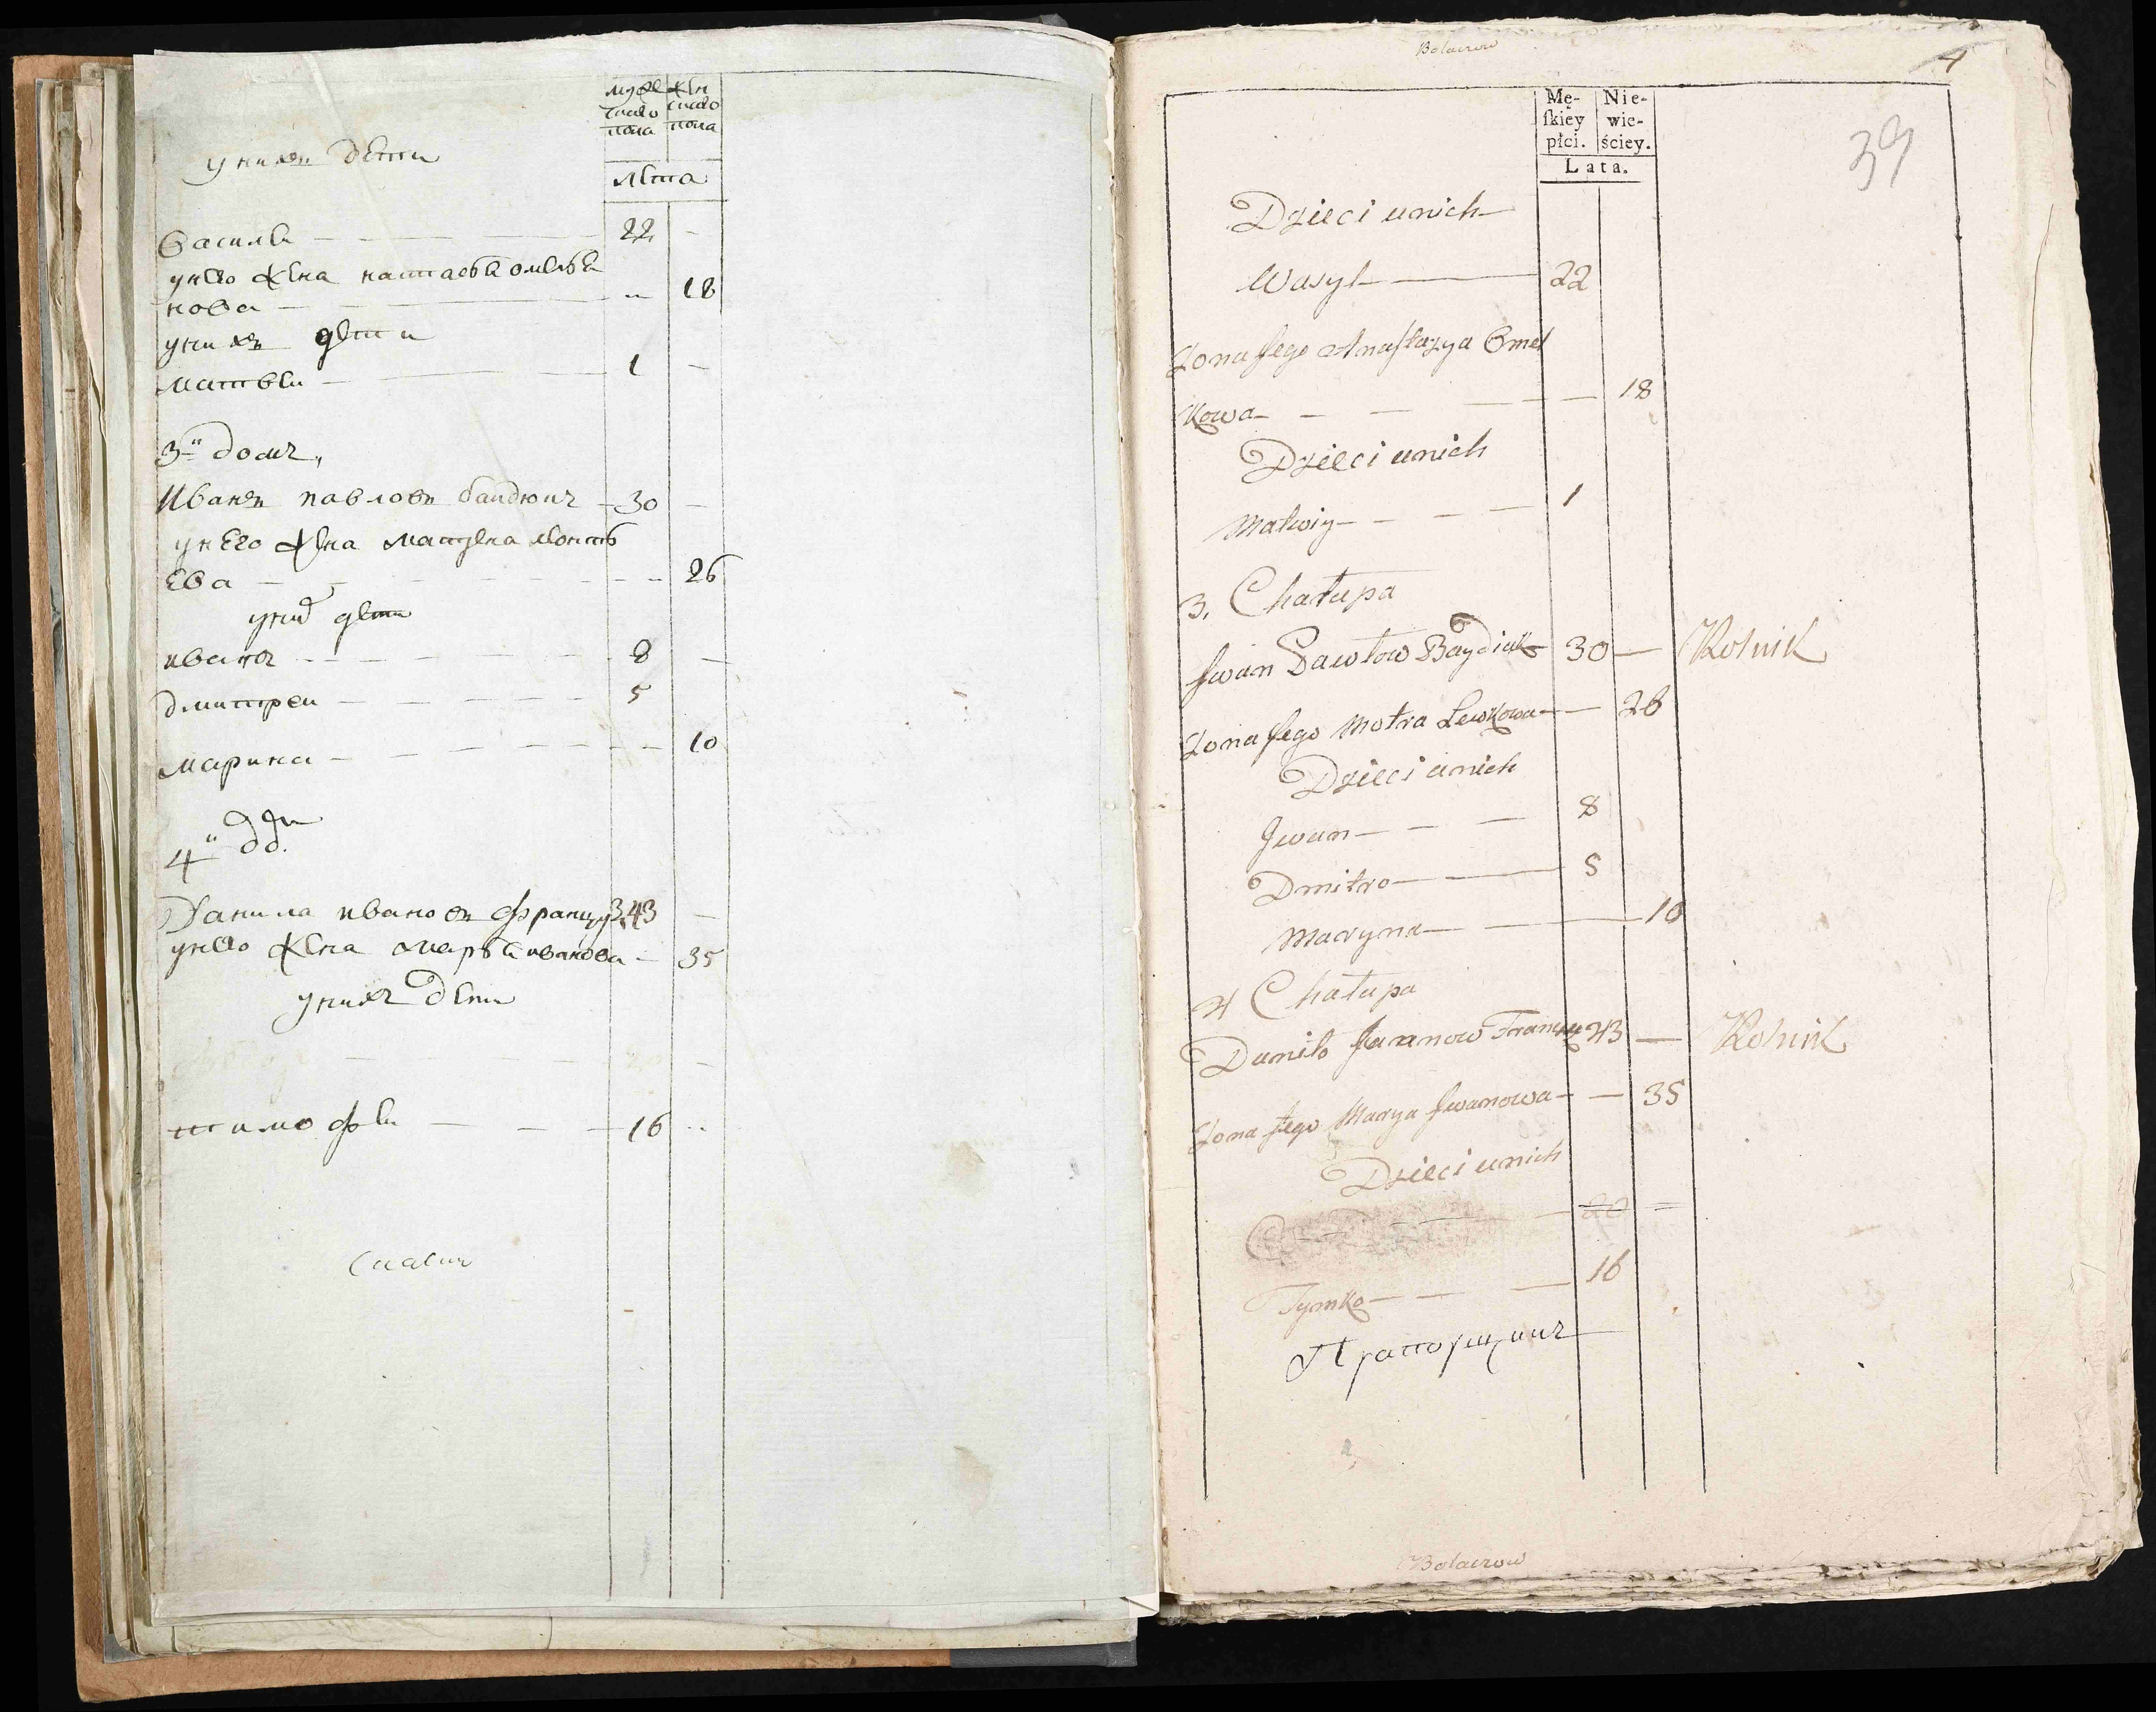 мужеска
пола
женска
пола
лета
у нихъ дети
Василеи — 22 —
у него жена настасья омелья
нова — 18
у нихъ дети
матвеи — 1 —
3й домъ,
Иванъ павловъ байдюкъ — 30 —
у него жена
ева — 26
у них дети
иванъ — 8 —
дмитреи — 5
марина — 10
4й
Данила ивановъ француз 43 —
у него жена марья иванова — 35
у нихъ дети
тимофеи — 16
Bolacrow
4
39
Mę-
skiey
płci.
Nie-
wie-
ściey.
Lata.
Dzieci unich
Wasyl — 22
Zona Jego Anastazya Omel
kowa — 18
Dzieci unich
Matwiy — 1
3. Chałupa
Jwan Pawłow Baydiuk 30 — Rolnik
Zona Jego Motra Lewkowa — 26
Dzieci unich
Jwan — 8
Dmitro — 5
Maryna — 10
4 Chałupa
Daniło Jwanow Francuz 43 — Rolnik
Zona Jego Marya Jwanowa — 35
Dzieci unich
20 =
Tymko — 16
Прапорщикъ
Bolacrow